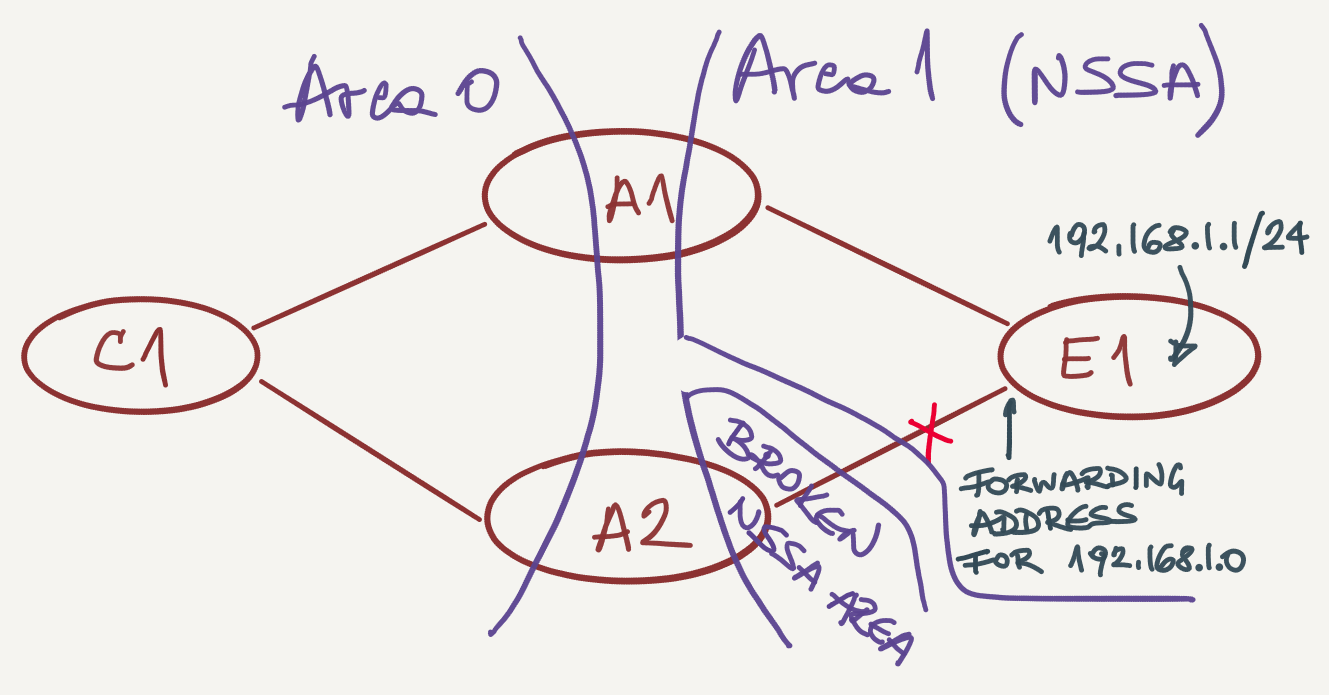 Area 0
Area 1 (NSSA)
A1
192.168.1.1/24
C1
E1
BROKEN
NSSA AREA
A2
FORWARDING
ADDRESS
FOR 192.168.1.0